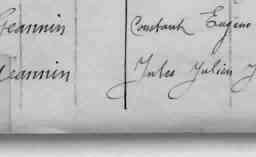 Jeannin Constant Eugène
Jeannin Jules Julien J